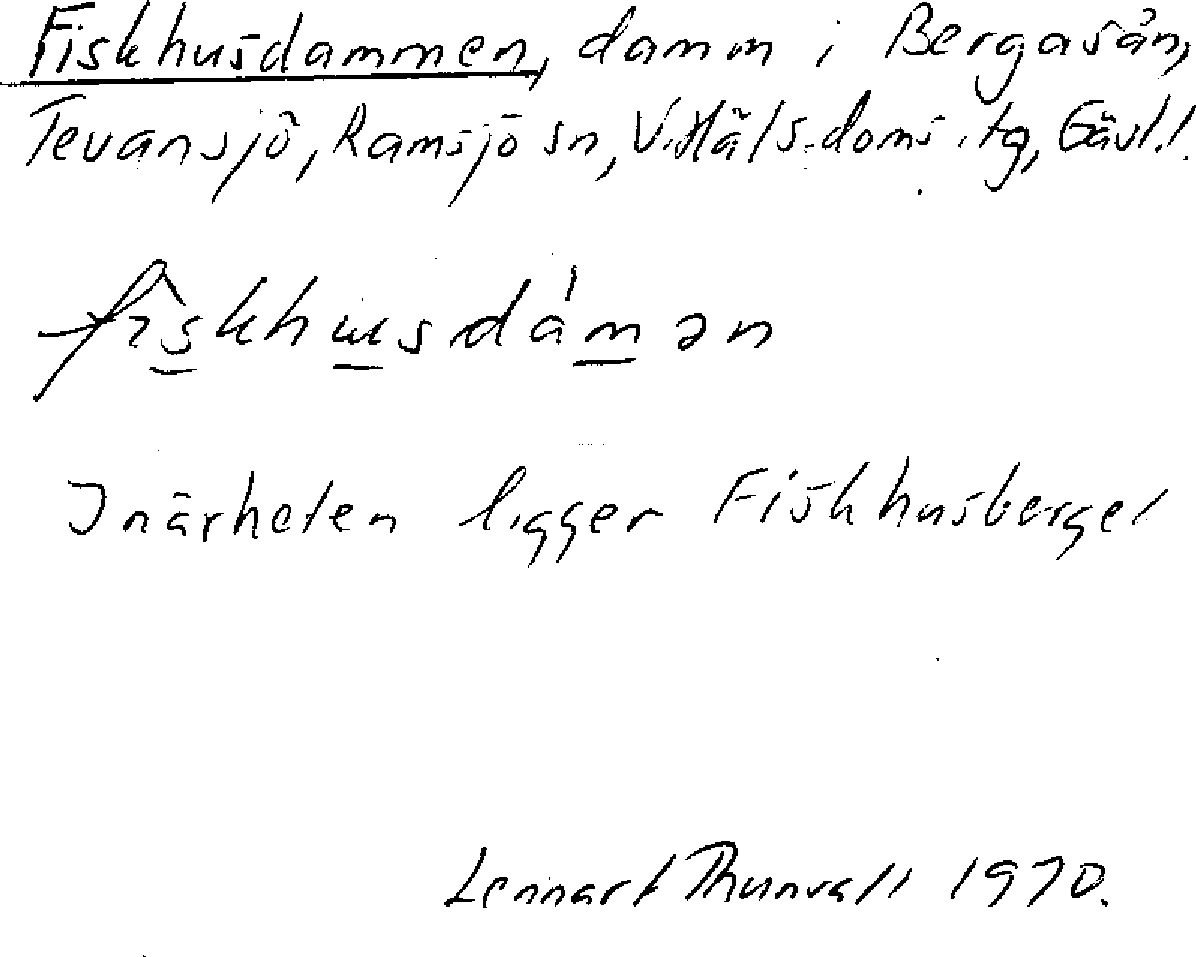 Fiskhusdammen, damm i Bergasån,
Tevansjö, Ramsjö sn, V. Häls. doms. tg, Gävl. l.
fiskhusdámən
I närheten ligger Fiskhusberget
Lennart Thunvall 1970.